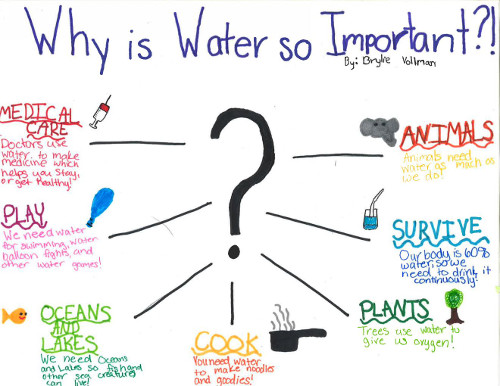 Why is Water so Important?!
By: Brylie Vollman
MEDICAL
CARE
Doctors use
water, to make
medicine which
helps you stay,
or get Healthy!
ANIMALS
Animals need
water as much as
we do!
PLAY
We need water
for swimming, water
balloon fights, and
other water games!
SURVIVE
Our body is 60%
water, so we
need to drink it
continuously!
OCEANS
AND
LAKES
We need Oceans
and Lakes so fish and
other sea creatures
can live!
COOK
You need water
to make noodles
and goodies!
PLANTS
Trees use water to
give us oxygen!